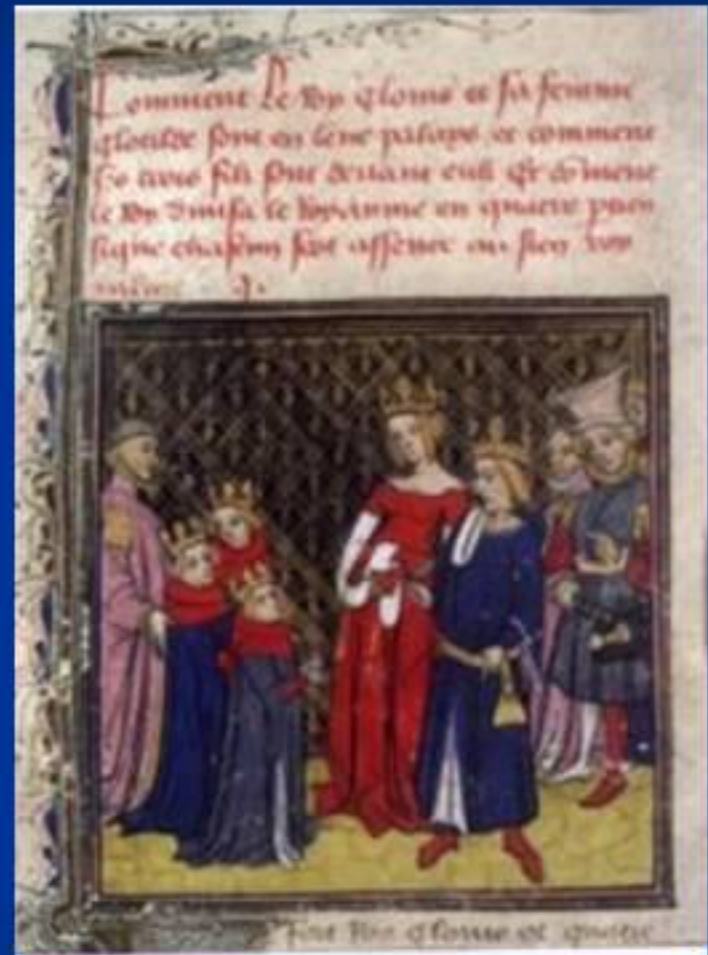 Comment Le Roy clouis et sa femme
clotilde sont en leur palays et comment
ses trois filz sont deuant eulx Et coment
le Roy diuisa le Royaume en quatre
sique chascun assener au sien Roy
Roy clouis ot quatre